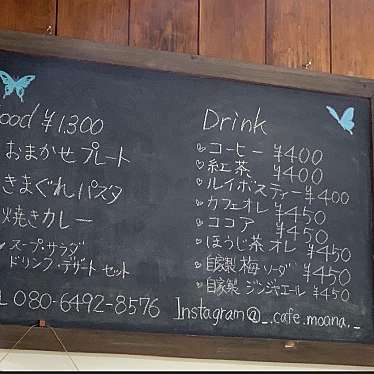 ood ¥1.300
おまかせプレート
きまぐれパスタ
焼きカレー
スープ・サラダ
ドリンク・デザート セット
L 080-6492-8576
Drink
コーヒー ¥400
紅茶 ¥400
ルイボスティー ¥400
カフェオレ ¥450
ココア ¥450
ほうじ茶オレ ¥450
自家製 梅ソーダ ¥450
自家製 ジンジャエール ¥450
Instagram@_.cafe.moana._